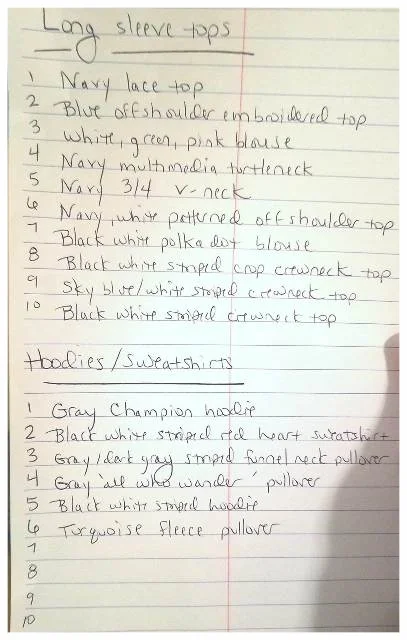 Long sleeve tops
1 Navy lace top
2 Blue offshoulder embroidered top
3 White, green, pink blouse
4 Navy multimedia turtleneck
5 Navy 3/4 v-neck
6 Navy, white patterned off shoulder top
7 Black white polka dot blouse
8 Black white striped crop crewneck top
9 Sky blue/white striped crewneck top
10 Black white striped crewneck top
Hoodies/Sweatshirts
1 Gray Champion hoodie
2 Black white striped red heart sweatshirt
3 Gray/dark gray striped funnel neck pullover
4 Gray 'all who wander' pullover
5 Black white striped hoodie
6 Turquoise fleece pullover
7
8
9
10